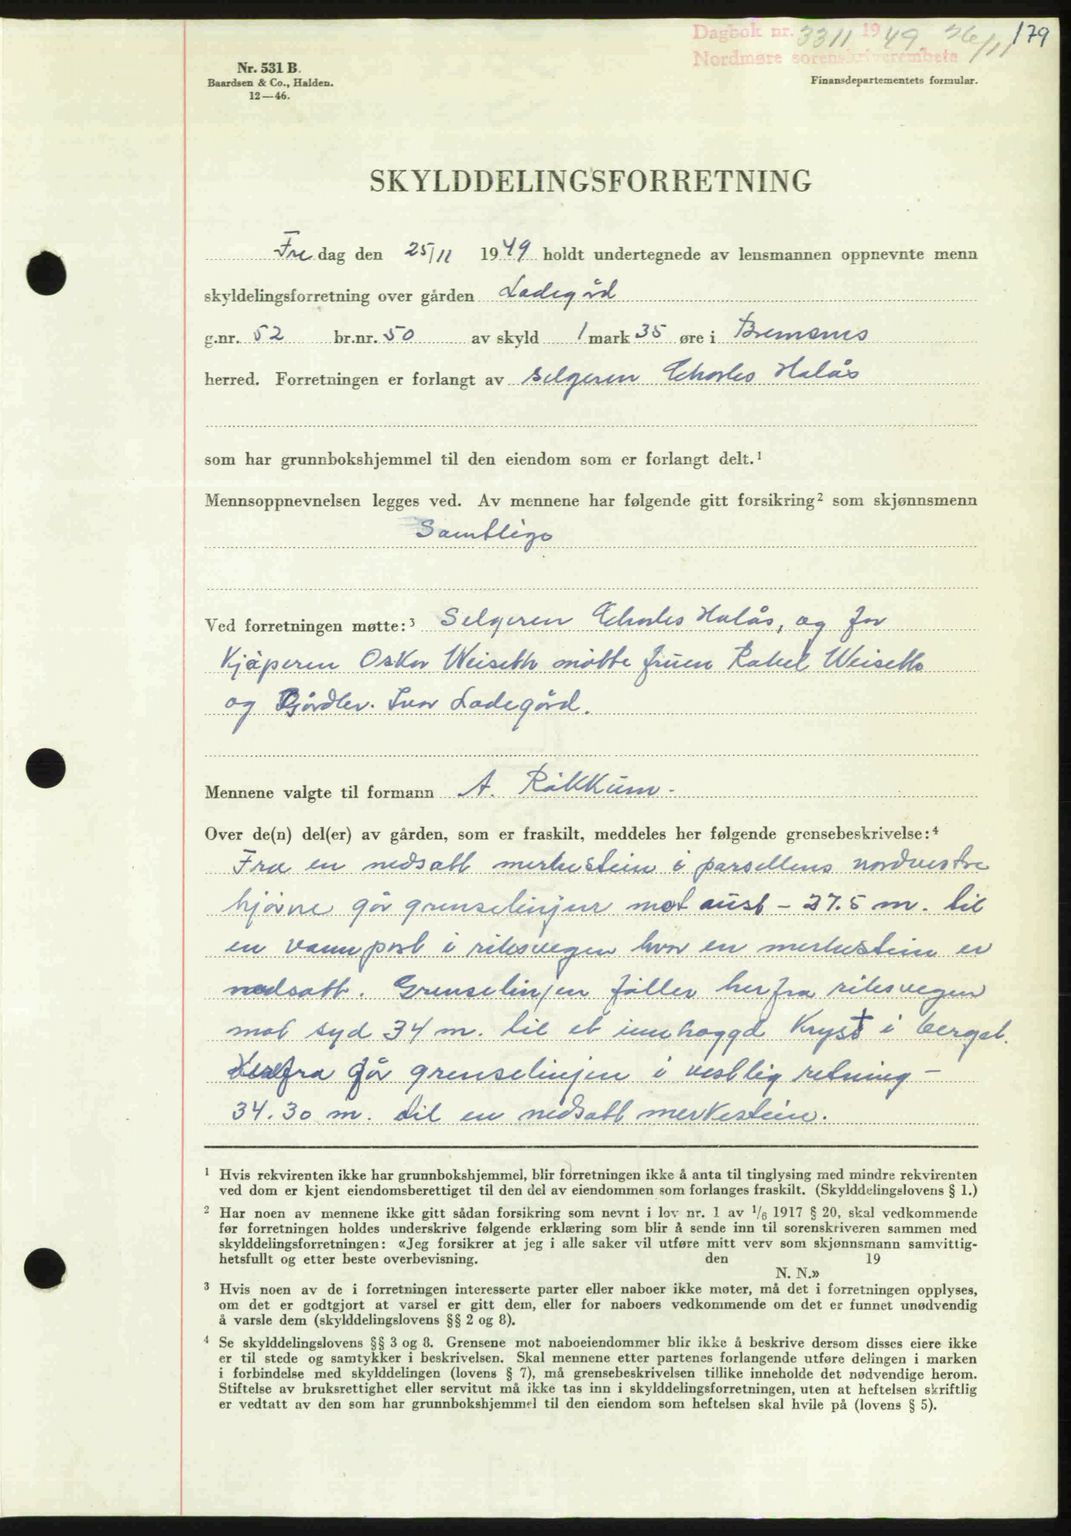 Dagbok nr. 3311 1949. 26/11 179
Nordmøre sorenskriverembete
Nr. 531 B.
Baardsen & Co., Halden.
12—46.
Finansdepartementets formular.
SKYLDDELINGSFORRETNING
Fre dag den 25/11 1949 holdt undertegnede av lensmannen oppnevnte menn
skyldelingsforretning over gården Ladegård
g.nr. 52 br.nr. 50 av skyld 1 mark 35 øre i Bremsnes
herred. Forretningen er forlangt av selgeren Charles Halås
som har grunnbokshjemmel til den eiendom som er forlangt delt.¹
Mennsoppnevnelsen legges ved. Av mennene har følgende gitt forsikring² som skjønnsmenn
Samtlige
Ved forretningen møtte:³ Selgeren Charles Halås, og for
kjøperen Oskar Weiseth møtte fruen Rakel Weiseth
og Gårdbr. Ivar Ladegård.
Mennene valgte til formann A. Røkkum.
Over de(n) del(er) av gården, som er fraskilt, meddeles her følgende grensebeskrivelse:⁴
Fra en nedsatt merkestein i parsellens nordvestre
hjørne går grenselinjen mot aust - 37.5 m. til
en vannpost i riksvegen hvor en merkestein er
nedsatt. Grenselinjen føller herfra riksvegen
mot syd 34 m. til et innhoggd kryss † i berget.
Herfra går grenselinjen i vestlig retning -
34.30 m. til en nedsatt merkestein.
¹ Hvis rekvirenten ikke har grunnbokshjemmel, blir forretningen ikke å anta til tinglysing med mindre rekvirenten
ved dom er kjent eiendomsberettiget til den del av eiendommen som forlanges fraskilt. (Skylddelingslovens § 1.)
² Har noen av mennene ikke gitt sådan forsikring som nevnt i lov nr. 1 av 1/6 1917 § 20, skal vedkommende
før forretningen holdes underskrive følgende erklæring som blir å sende inn til sorenskriveren sammen med
skylddelingsforretningen: «Jeg forsikrer at jeg i alle saker vil utføre mitt verv som skjønnsmann samvittig-
hetsfullt og etter beste overbevisning. den 19
N. N.»
³ Hvis noen av de i forretningen interesserte parter eller naboer ikke møter, må det i forretningen opplyses,
om det er godtgjort at varsel er gitt dem, eller for naboers vedkommende om det er funnet unødvendig
å varsle dem (skylddelingslovens §§ 2 og 8).
⁴ Se skylddelingslovens §§ 3 og 8. Grensene mot naboeiendommer blir ikke å beskrive dersom disses eiere ikke
er til stede og samtykker i beskrivelsen. Skal mennene etter partenes forlangende utføre delingen i marken
i forbindelse med skylddelingen (lovens § 7), må grensebeskrivelsen tillike inneholde det nødvendige herom.
Stiftelse av bruksrettighet eller servitut må ikke tas inn i skylddelingsforretningen, uten at heftelsen skriftlig
er vedtatt av den som har grunnbokshjemmel til den eiendom som heftelsen skal hvile på (lovens § 5).